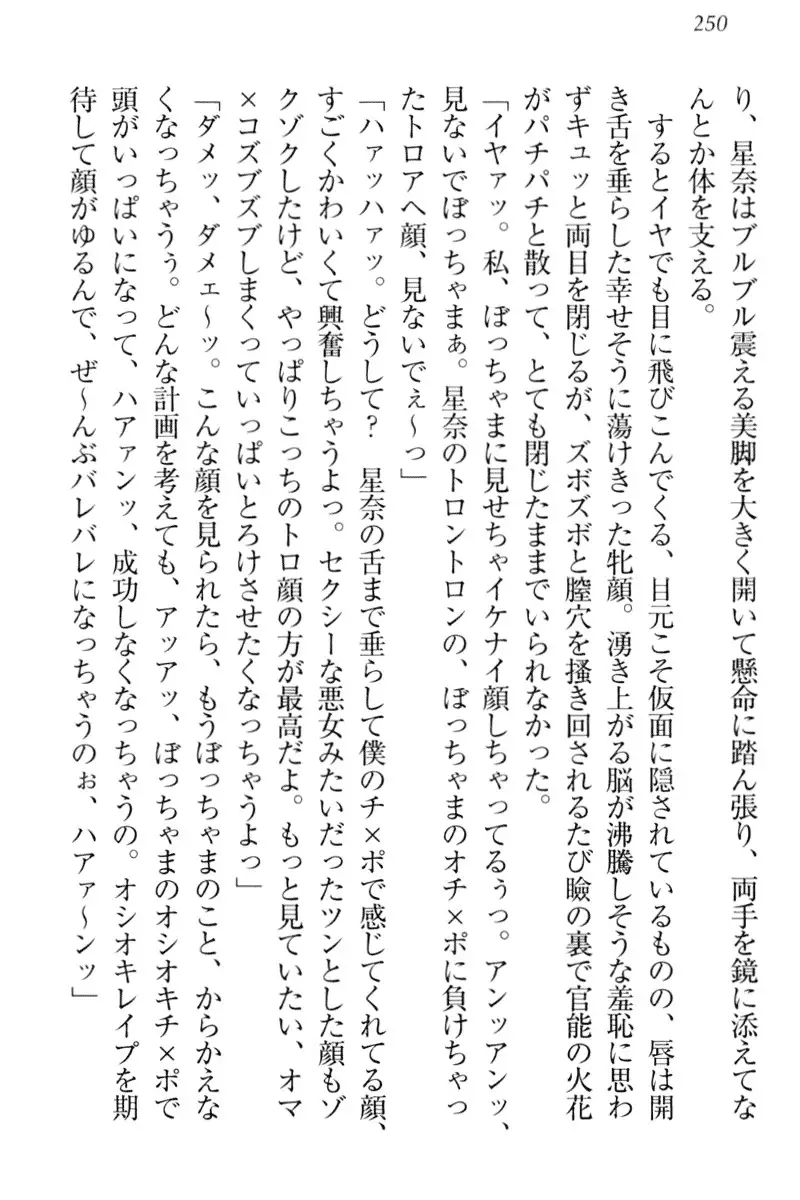 250
り、星奈はブルブル震える美脚を大きく開いて懸命に踏ん張り、両手を鏡に添えてな
んとか体を支える。
するとイヤでも目に飛びこんでくる、目元こそ仮面に隠されているものの、唇は開
き舌を垂らした幸せそうに蕩けきった牝顔。湧き上がる脳が沸騰しそうな羞恥に思わ
ずキュッと両目を閉じるが、ズボズボと膣穴を掻き回されるたび瞼の裏で官能の火花
がパチパチと散って、とても閉じたままでいられなかった。
「イヤァッ。私、ぼっちゃまに見せちゃイケナイ顔しちゃってるぅっ。アンッアンッ、
見ないでぼっちゃまぁ。星奈のトロントロンの、ぼっちゃまのオチ×ポに負けちゃっ
たトロアヘ顔、見ないでぇ〜っ」
「ハァッハァッ。どうして？　星奈の舌まで垂らして僕のチ×ポで感じてくれてる顔、
すごくかわいくて興奮しちゃうよっ。セクシーな悪女みたいだったツンとした顔もゾ
クゾクしたけど、やっぱりこっちのトロ顔の方が最高だよ。もっと見ていたい、オマ
×コズブズブしまくっていっぱいとろけさせたくなっちゃうよっ」
「ダメッ、ダメェ〜ッ。こんな顔を見られたら、もうぼっちゃまのこと、からかえな
くなっちゃうぅ。どんな計画を考えても、アッアッ、ぼっちゃまのオシオキチ×ポで
頭がいっぱいになって、ハアァンッ、成功しなくなっちゃうの。オシオキレイプを期
待して顔がゆるんで、ぜ〜んぶバレバレになっちゃうのぉ、ハアァ〜ンッ」